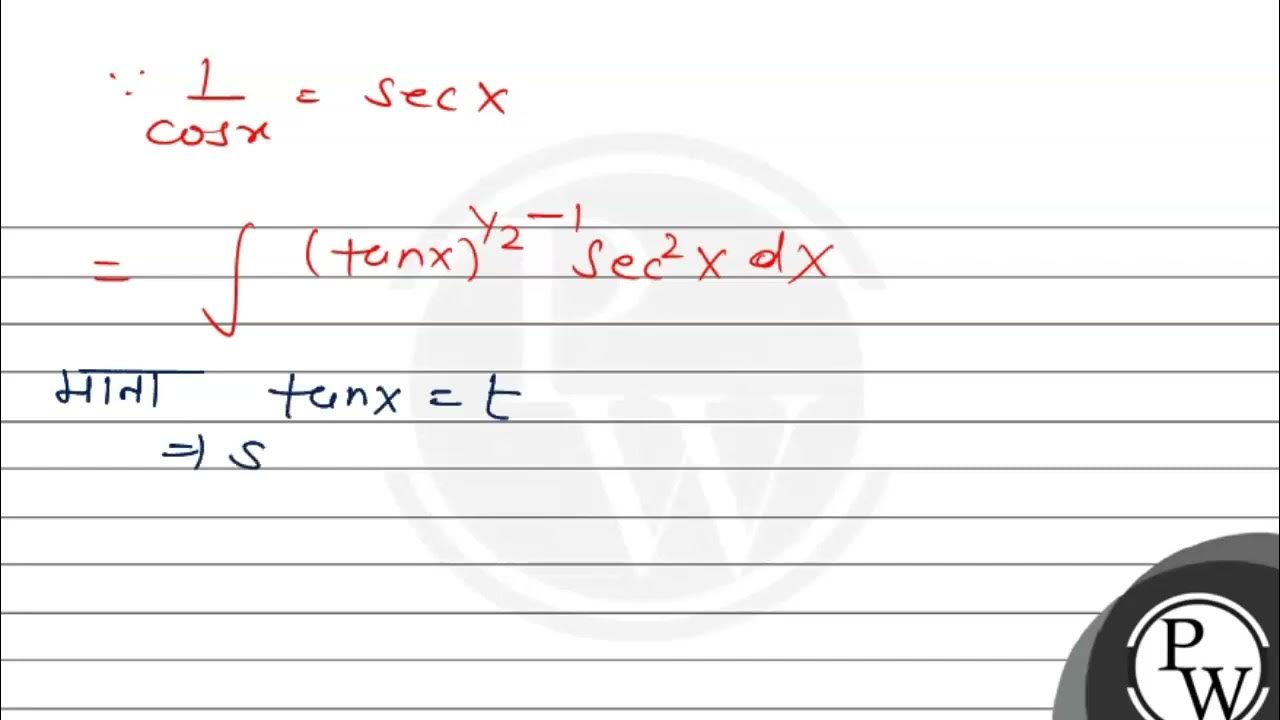 ∵ 1/cosx = secx
= ∫ (tanx)^{1/2 - 1} sec²x dx
माना tanx = t
⇒ s
PW
PW